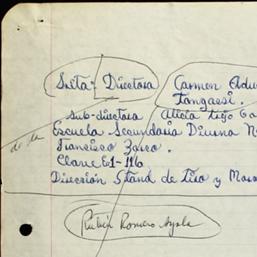 Srita. Directora
Carmen Adu
Tangassi.
Sub-directora Alicia Trejo Ga
de la
Escuela Secundaria Diurna N
Francisco Zarco.
Clave Es1-116
Dirección Stand de tiro y Mora
Rubén Romero Ayala